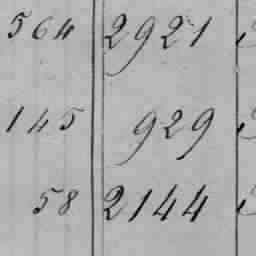 564 2921
145 929
58 2144